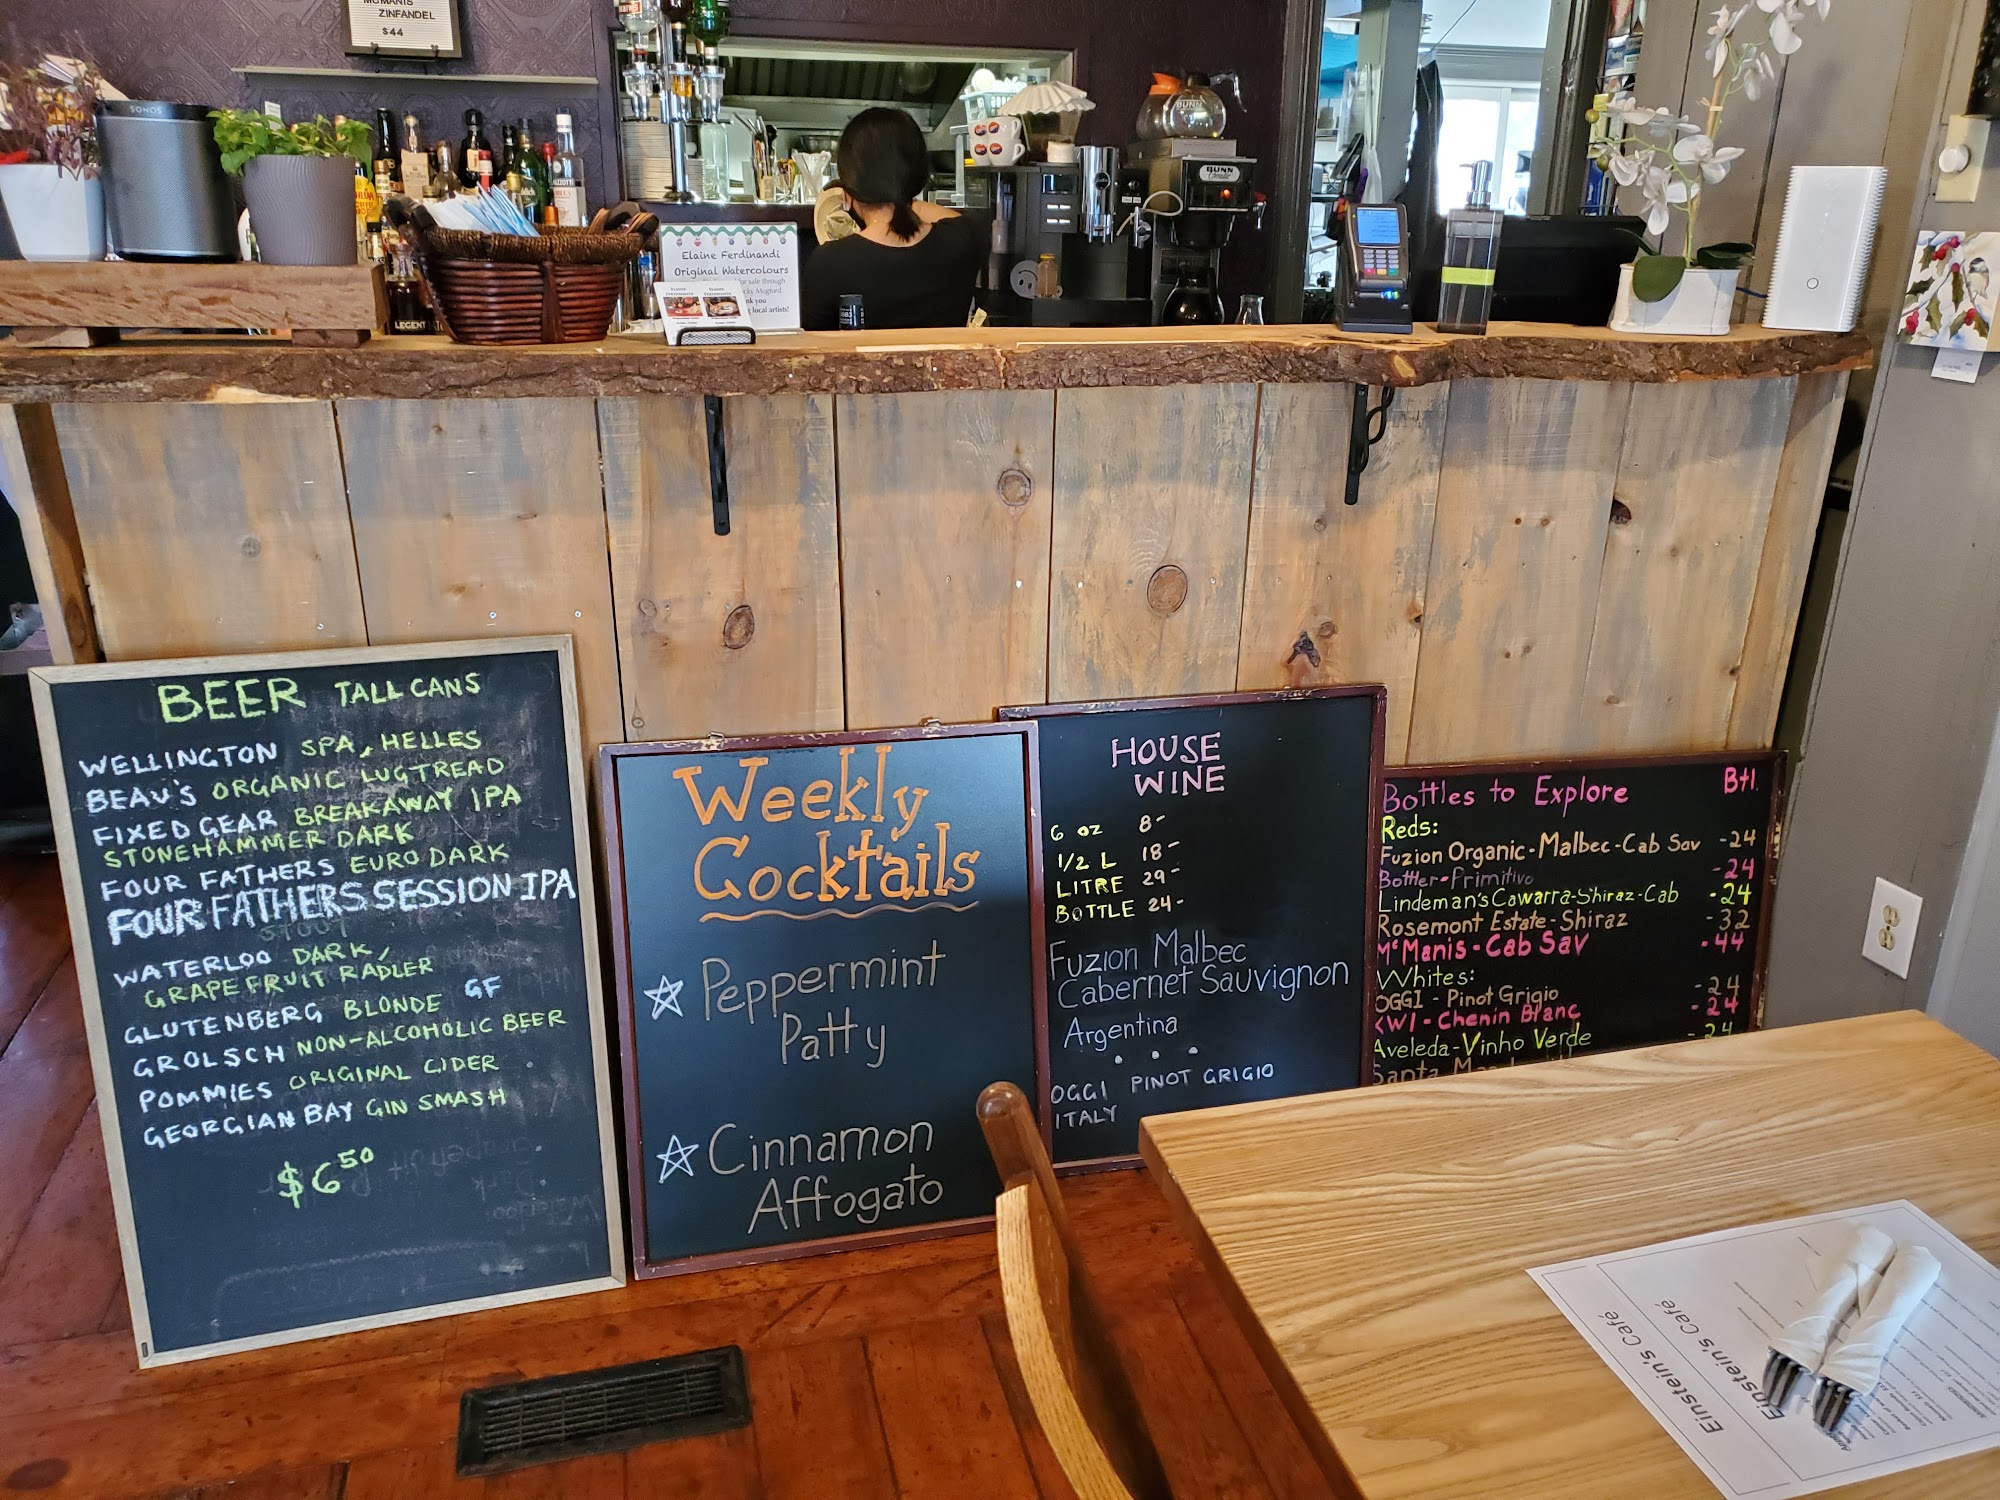 McMANIS
ZINFANDEL
$44
SONOS
BUNN
BUNN
Elaine Ferdinandi
Original Watercolours
for sale through
Mugford
local artists!
LEGENT
BEER TALL CANS
WELLINGTON SPA, HELLES
BEAU'S ORGANIC LUGTREAD
FIXED GEAR BREAKAWAY IPA
STONEHAMMER DARK
FOUR FATHERS EURO DARK
FOUR FATHERS SESSION IPA
WATERLOO DARK,
GRAPEFRUIT RADLER
GLUTENBERG BLONDE GF
GROLSCH NON-ALCOHOLIC BEER
POMMIES ORIGINAL CIDER
GEORGIAN BAY GIN SMASH
$6 50
Weekly
Cocktails
Peppermint
Patty
Cinnamon
Affogato
HOUSE
WINE
6 oz 8-
1/2 L 18-
LITRE 29-
BOTTLE 24-
Fuzion Malbec
Cabernet Sauvignon
Argentina
OGGI PINOT GRIGIO
ITALY
Bottles to Explore Btl.
Reds:
Fuzion Organic-Malbec-Cab Sav -24
Bottler-Primitivo -24
Lindeman's Cawarra-Shiraz-Cab -24
Rosemont Estate-Shiraz -32
McManis-Cab Sav -44
Whites:
OGGI - Pinot Grigio -24
KWI-Chenin Blanc -24
Aveleda-Vinho Verde -24
Santa
Einstein's Café
Einstein's Café